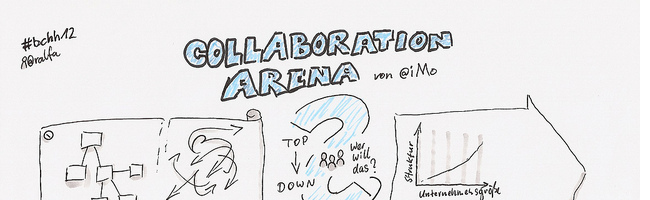 #bchh12
@ralfa
COLLABORATION
ARENA von @iMo
TOP
DOWN
Wer
will
das?
Struktur
Unternehmensgröße